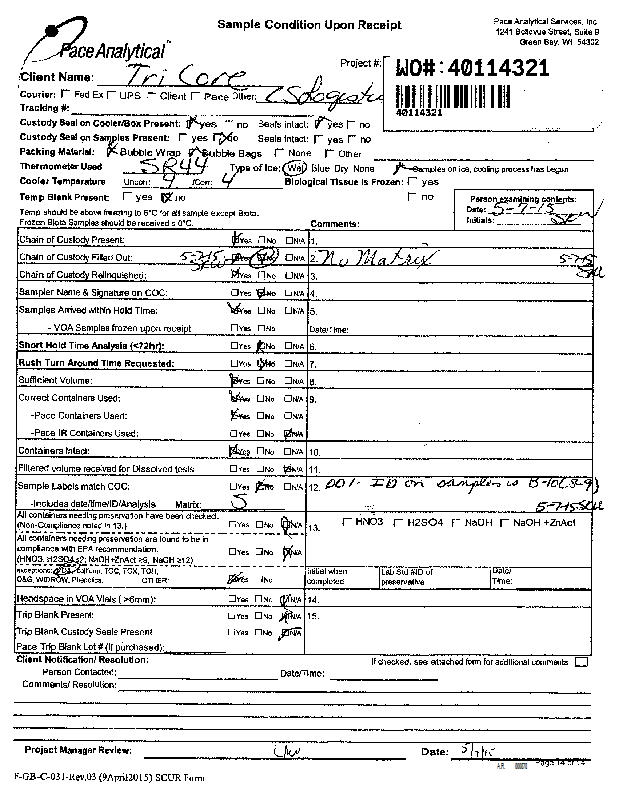 Sample Condition Upon Receipt
Pace Analytical Services, Inc
1241 Bellevue Street, Suite 9
Green Bay, WI 54302
Pace Analytical™
Client Name: Tri Core
Project #:
WO#: 40114321
40114321
Courier: Fed Ex UPS Client Pace Other: CS Logistics
Tracking #:
Custody Seal on Cooler/Box Present: yes no Seals intact: yes no
Custody Seal on Samples Present: yes no Seals intact: yes no
Packing Material: Bubble Wrap Bubble Bags None Other
Thermometer Used SR44 Type of Ice: Wet Blue Dry None Samples on ice, cooling process has begun
Cooler Temperature Uncorr: 4 /Corr: 4 Biological Tissue is Frozen: yes
Temp Blank Present: yes no no
Person examining contents:
Date: 5-7-15
Initials: SKW
Temp should be above freezing to 6°C for all sample except Biota.
Frozen Biota Samples should be received ≤ 0°C.
Comments:
Chain of Custody Present: Yes No N/A 1.
Chain of Custody Filled Out: 5-7-15 SKW Yes No N/A 2. No Matrix 5-7-15 SKW
Chain of Custody Relinquished: Yes No N/A 3.
Sampler Name & Signature on COC: Yes No N/A 4.
Samples Arrived within Hold Time: Yes No N/A 5.
- VOA Samples frozen upon receipt Yes No Date/Time:
Short Hold Time Analysis (<72hr): Yes No N/A 6.
Rush Turn Around Time Requested: Yes No N/A 7.
Sufficient Volume: Yes No N/A 8.
Correct Containers Used: Yes No N/A 9.
-Pace Containers Used: Yes No N/A
-Pace IR Containers Used: Yes No N/A
Containers Intact: Yes No N/A 10.
Filtered volume received for Dissolved tests Yes No N/A 11.
Sample Labels match COC: Yes No N/A 12. 001- ID on samples is B-10(8-9)
-Includes date/time/ID/Analysis Matrix: S 5-7-15 SKW
All containers needing preservation have been checked.
(Non-Compliance noted in 13.) Yes No N/A 13. HNO3 H2SO4 NaOH NaOH +ZnAct
All containers needing preservation are found to be in
compliance with EPA recommendation.
(HNO3, H2SO4 ≤2; NaOH+ZnAct ≥9, NaOH ≥12) Yes No N/A
exceptions: VOA, coliform, TOC, TOX, TOH,
O&G, WIDROW, Phenolics, OTHER: Yes No
Initial when completed
Lab Std #ID of preservative
Date/ Time:
Headspace in VOA Vials ( >6mm): Yes No N/A 14.
Trip Blank Present: Yes No N/A 15.
Trip Blank Custody Seals Present Yes No N/A
Pace Trip Blank Lot # (if purchased):
Client Notification/ Resolution: If checked, see attached form for additional comments
Person Contacted: Date/Time:
Comments/ Resolution:
Project Manager Review: Date: 5/7/15
Page 14 of 14
F-GB-C-031-Rev.03 (9April2015) SCUR Form